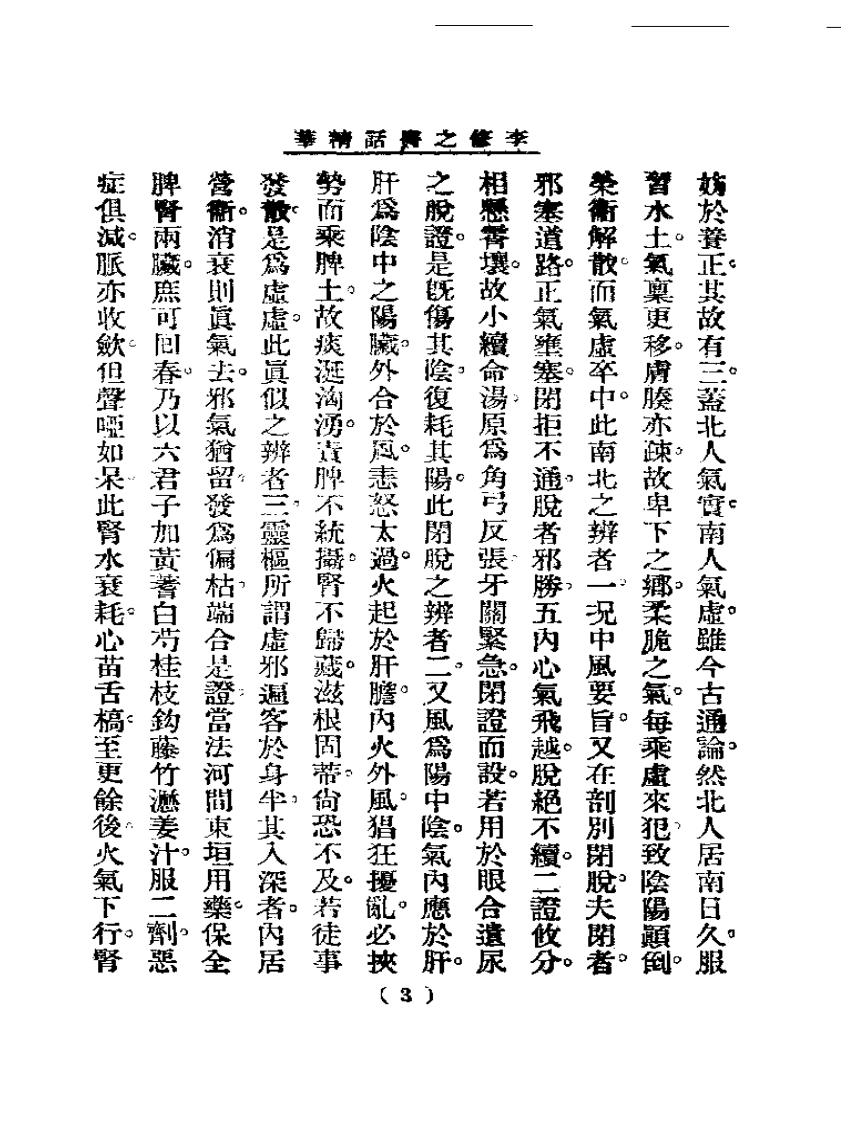 李修之醫話精華
妨於養正。其故有三。蓋北人氣實。南人氣虛。雖今古通論。然北人居南日久。服
習水土。氣稟更移。膚腠亦疎。故卑下之鄉。柔脆之氣。每乘虛來犯。致陰陽顚倒。
榮衞解散。而氣虛卒中。此南北之辨者一。況中風要旨。又在剖別閉脫。夫閉者。
邪塞道路。正氣壅塞。閉拒不通。脫者邪勝。五內心氣飛越。脫絕不續。二證攸分。
相懸霄壤。故小續命湯。原爲角弓反張。牙關緊急。閉證而設。若用於眼合遺尿
之脫證。是旣傷其陰。復耗其陽。此閉脫之辨者二。又風爲陽中陰。氣內應於肝。
肝爲陰中之陽臟。外合於風。恚怒太過。火起於肝膽。內火外風。猖狂擾亂。必挾
勢而乘脾土。故痰涎洶湧。責脾不統攝。腎不歸藏。滋根固蒂。尙恐不及。若徒事
發散。是爲虛虛。此眞似之辨者三。靈樞所謂虛邪遍客於身半。其入深者。內居
營衞。消衰則眞氣去。邪氣猶留。發爲偏枯。端合是證。當法河間東垣用藥。保全
脾腎兩臟。庶可回春。乃以六君子加黃蓍白芍桂枝鈎藤竹瀝姜汁。服二劑。惡
症俱減。脈亦收歛。但聲啞如呆。此腎水衰耗。心苗舌槁。至更餘後。火氣下行。腎
( 3 )